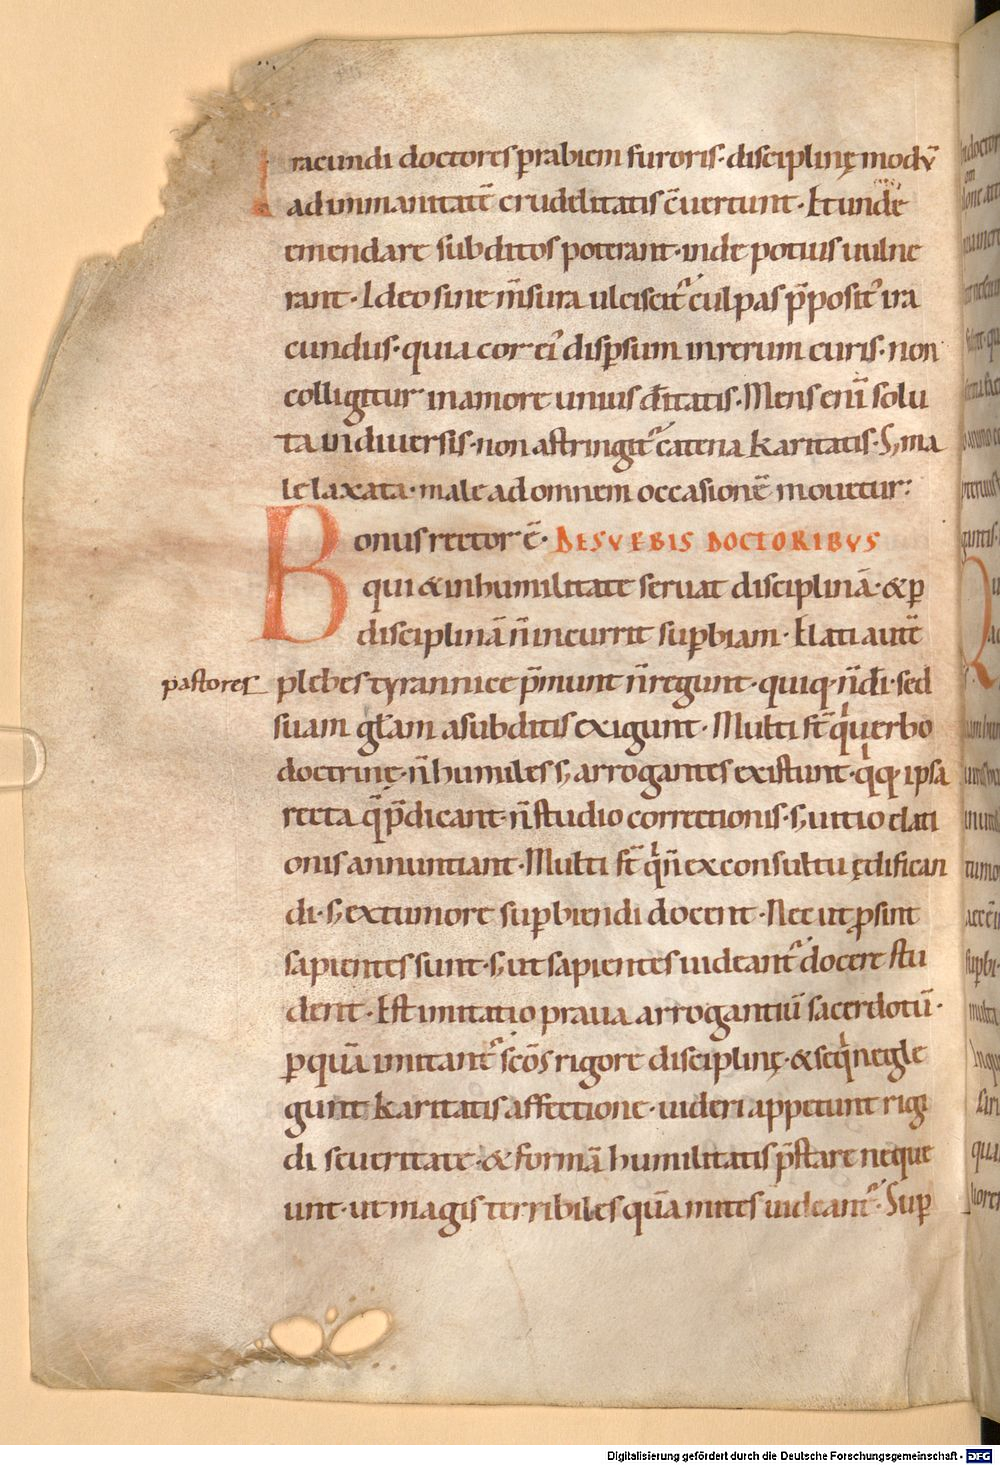 Iracundi doctores ꝑrabiem furoris· disciplinę modv̄
ad inmanitatē crudelitatis c̄uertunt· Et unde
emendare subditos poterant· inde potius uulne
rant· Ideo sine m̄sura ulciscit᷑ culpas p̄posit᷒ ira
cundus· quia cor ei᷒ disꝑsum in rerum curis· non
colligitur in amore unius d̄itatis· Mens eni̅ solu
ta in diuersis· non astringit᷑ catena karitatis· S; ma
le laxata· male ad omnem occasionē mouetur:
Bonus rector ē· DE SVꝒBIS DOCTORIBVS
qui & in humilitate seruat disciplinā· & ꝑ
disciplinā n̄ incurrit suꝑbiam· Elati autē
pastores plebes tyrannice p̄munt n̄ regunt· quiq· n̄ di̅· sed
suam gl̄am a subditis exigunt· Multi st̄ qͥ uerbo
doctrinę· n̄ humiles s; arrogantes existunt· qͥq ipsa
recta q̄ p̄dicant· n̄ studio correctionis· s; uitio elati
onis annuntiant· Multi st̄ qͥ n̄ ex consultu ędifican
di· s; ex tumore suꝑbiendi docent· Nec ut ꝓsint
sapientes sunt· s; ut sapientes uideant᷑ docere stu
dent· Est imitatio praua arrogantiū sacerdotū·
ꝑ quā imitant᷑ sc̄os rigore disciplinę· & seqͥ negle
gunt karitatis affectione· uideri appetunt rigi
di seueritate· & formā humilitatis p̄stare neque
unt· ut magis terribiles quā mites uideant᷑· Suꝑ
Digitalisierung gefördert durch die Deutsche Forschungsgemeinschaft - DFG